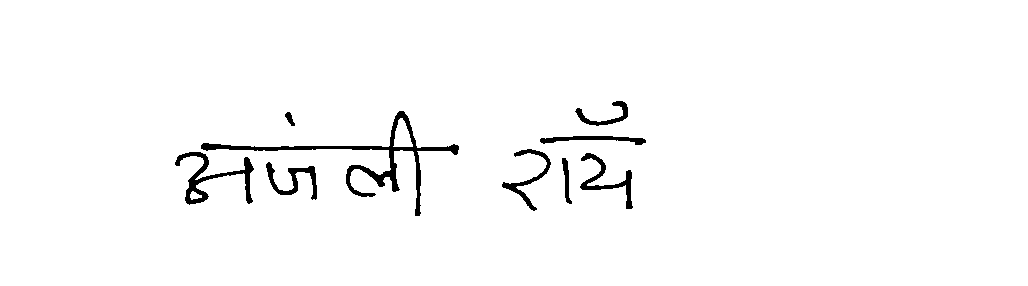 अजंली रॉय